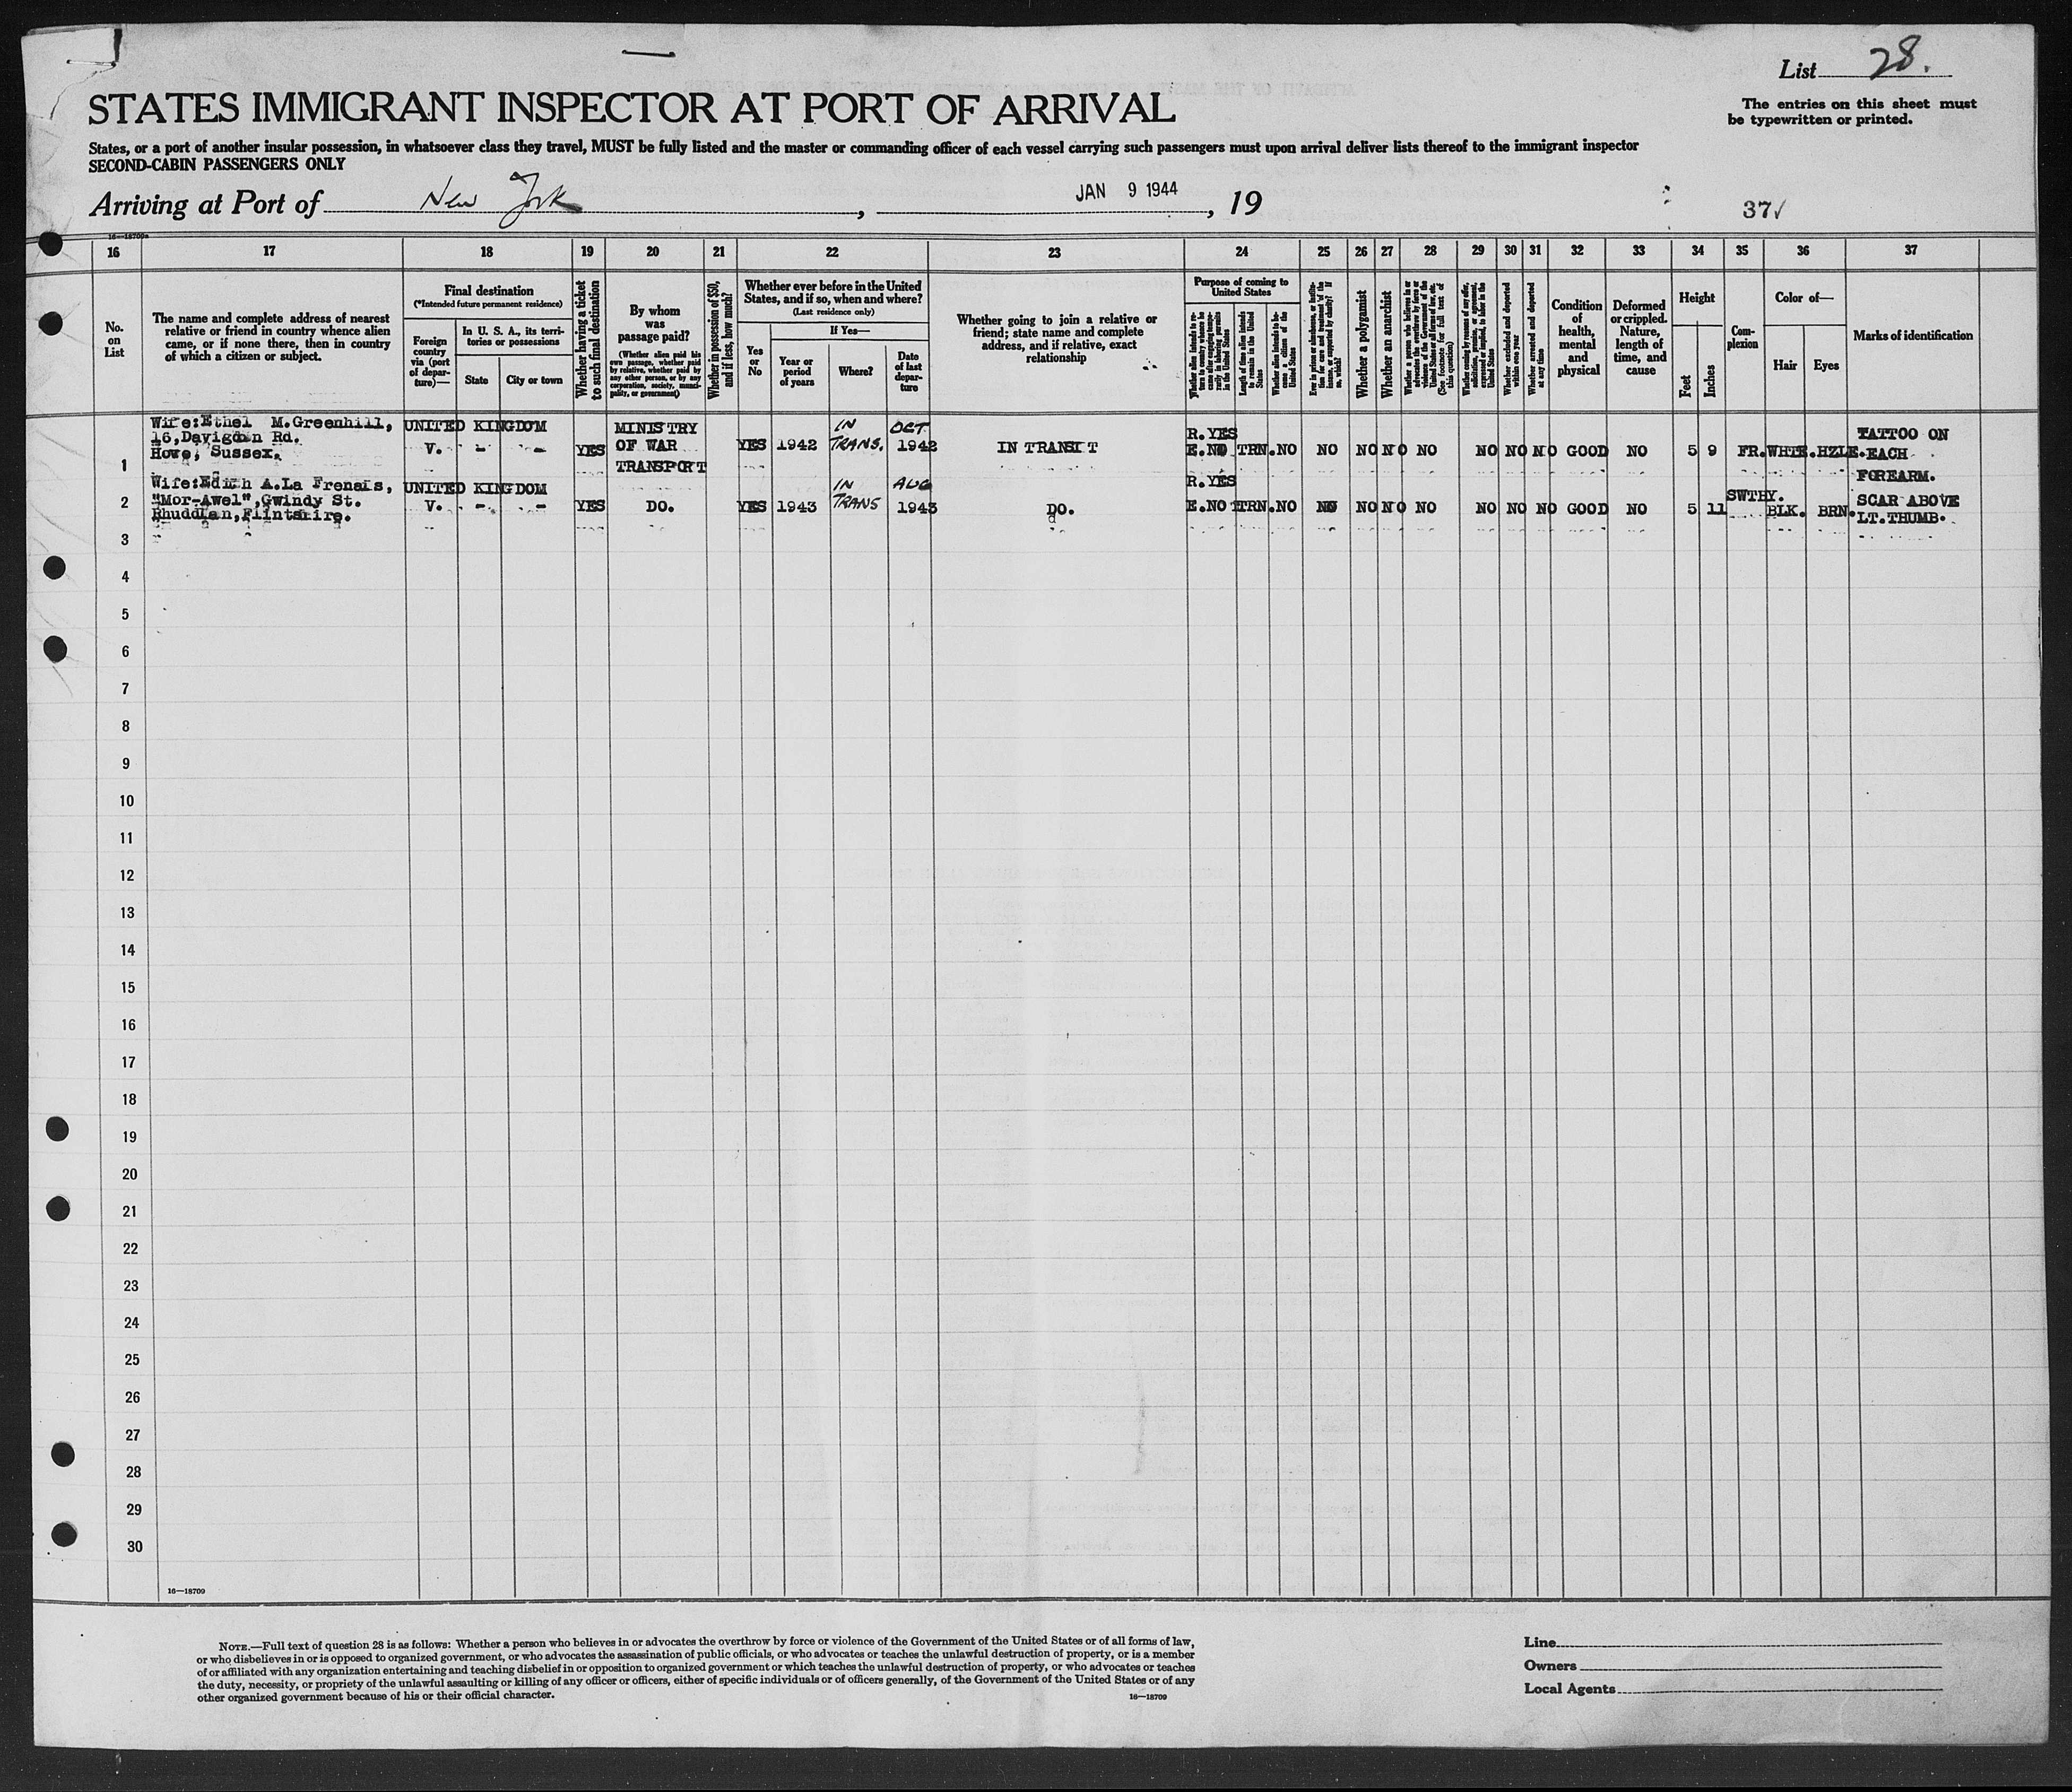 List 28.
The entries on this sheet must
be typewritten or printed.
STATES IMMIGRANT INSPECTOR AT PORT OF ARRIVAL
States, or a port of another insular possession, in whatsoever class they travel, MUST be fully listed and the master or commanding officer of each vessel carrying such passengers must upon arrival deliver lists thereof to the immigrant inspector
SECOND-CABIN PASSENGERS ONLY
Arriving at Port of New York, JAN 9 1944, 19
37√
16—18709a
16 17 18 19 20 21 22 23 24 25 26 27 28 29 30 31 32 33 34 35 36 37
No.
on
List
The name and complete address of nearest
relative or friend in country whence alien
came, or if none there, then in country
of which a citizen or subject.
Final destination
(*Intended future permanent residence)
Foreign
country
via (port
of depar-
ture)—
In U. S. A., its terri-
tories or possessions
State
City or town
Whether having a ticket
to such final destination
By whom
was
passage paid?
(Whether alien paid his
own passage, whether paid
by relative, whether paid by
any other person, or by any
corporation, society, munici-
pality, or government)
Whether in possession of $50,
and if less, how much?
Whether ever before in the United
States, and if so, when and where?
(Last residence only)
Yes
or
No
If Yes—
Year or
period
of years
Where?
Date
of last
depar-
ture
Whether going to join a relative or
friend; state name and complete
address, and if relative, exact
relationship
Purpose of coming to
United States
Whether alien intends to re-
turn to country whence he
came after engaging tempo-
rarily in laboring pursuits
in the United States
Length of time alien intends
to remain in the United
States
Whether alien intends to be-
come a citizen of the
United States
Ever in prison or almshouse, or institu-
tion for care and treatment of the
insane, or supported by charity? If
so, which?
Whether a polygamist
Whether an anarchist
Whether a person who believes in or
advocates the overthrow by force or
violence of the Government of the
United States or all forms of law, etc.
(See footnote for full text of
this question)
Whether coming by reasons of any offer,
solicitation, promise, or agreement,
expressed or implied, to labor in the
United States
Whether excluded and deported
within one year
Whether arrested and deported
at any time
Condition
of
health,
mental
and
physical
Deformed
or crippled.
Nature,
length of
time, and
cause
Height
Feet
Inches
Com-
plexion
Color of—
Hair
Eyes
Marks of identification
1
Wife:Ethel M.Greenhill,
16,Davigdon Rd.
Hove, Sussex.
UNITED KINGDOM
V. - -
YES
MINISTRY
OF WAR
TRANSPORT
YES 1942 IN TRANS. OCT 1942
IN TRANSIT
R.YES
E.NO TRN. NO NO NO NO NO NO NO NO GOOD NO 5 9 FR. WHTE. HZLE.
TATTOO ON
EACH
FOREARM.
2
Wife:Edith A.La Frenais,
"Mor-Awel",Gwindy St.
Rhuddlan,Flintshire.
UNITED KINGDOM
V. - -
YES DO. YES 1943 IN TRANS AUG 1943
DO.
R.YES
E.NO TRN. NO NO NO NO NO NO NO NO GOOD NO 5 11 SWTHY. BLK. BRN.
SCAR ABOVE
LT.THUMB.
3
4
5
6
7
8
9
10
11
12
13
14
15
16
17
18
19
20
21
22
23
24
25
26
27
28
29
30
16—18709
NOTE.—Full text of question 28 is as follows: Whether a person who believes in or advocates the overthrow by force or violence of the Government of the United States or of all forms of law,
or who disbelieves in or is opposed to organized government, or who advocates the assassination of public officials, or who advocates or teaches the unlawful destruction of property, or is a member
of or affiliated with any organization entertaining and teaching disbelief in or opposition to organized government or which teaches the unlawful destruction of property, or who advocates or teaches
the duty, necessity, or propriety of the unlawful assaulting or killing of any officer or officers, either of specific individuals or of officers generally, of the Government of the United States or of any
other organized government because of his or their official character.
16—18709
Line
Owners
Local Agents